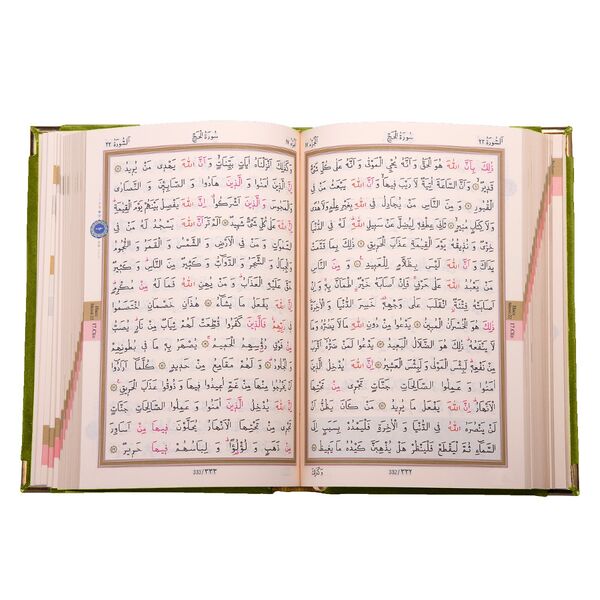 اَلسُّورَةُ ٢٢
سُورَةُ الْحَجِّ
ذٰلِكَ بِاَنَّ اللّٰهَ هُوَ الْحَقُّ وَاَنَّهُ يُحْيِ الْمَوْتٰى وَاَنَّهُ عَلٰى كُلِّ شَيْءٍ
قَدِيرٌ وَاَنَّ السَّاعَةَ اٰتِيَةٌ لَا رَيْبَ فِيهَا وَاَنَّ اللّٰهَ يَبْعَثُ مَنْ فِي
الْقُبُورِ وَمِنَ النَّاسِ مَنْ يُجَادِلُ فِي اللّٰهِ بِغَيْرِ عِلْمٍ وَلَا هُدًى
وَلَا كِتَابٍ مُنِيرٍ ثَانِيَ عِطْفِهِ لِيُضِلَّ عَنْ سَبِيلِ اللّٰهِ لَهُ فِي الدُّنْيَا
خِزْيٌ وَنُذِيقُهُ يَوْمَ الْقِيٰمَةِ عَذَابَ الْحَرِيقِ ذٰلِكَ بِمَا قَدَّمَتْ
يَدَاكَ وَاَنَّ اللّٰهَ لَيْسَ بِظَلَّامٍ لِلْعَبِيدِ وَمِنَ النَّاسِ مَنْ يَعْبُدُ
اللّٰهَ عَلٰى حَرْفٍ فَاِنْ اَصَابَهُ خَيْرٌ اطْمَاَنَّ بِهِ وَاِنْ
اَصَابَتْهُ فِتْنَةٌ انْقَلَبَ عَلٰى وَجْهِهِ خَسِرَ الدُّنْيَا وَالْاٰخِرَةَ
ذٰلِكَ هُوَ الْخُسْرَانُ الْمُبِينُ يَدْعُوا مِنْ دُونِ اللّٰهِ مَا لَا يَضُرُّهُ وَمَا
لَا يَنْفَعُهُ ذٰلِكَ هُوَ الضَّلَالُ الْبَعِيدُ يَدْعُوا لَمَنْ ضَرُّهُ اَقْرَبُ
مِنْ نَفْعِهِ لَبِئْسَ الْمَوْلٰى وَلَبِئْسَ الْعَشِيرُ اِنَّ اللّٰهَ يُدْخِلُ
الَّذِينَ اٰمَنُوا وَعَمِلُوا الصَّالِحَاتِ جَنَّاتٍ تَجْرِي مِنْ تَحْتِهَا
الْاَنْهَارُ اِنَّ اللّٰهَ يَفْعَلُ مَا يُرِيدُ مَنْ كَانَ يَظُنُّ اَنْ لَنْ
يَنْصُرَهُ اللّٰهُ فِي الدُّنْيَا وَالْاٰخِرَةِ فَلْيَمْدُدْ بِسَبَبٍ اِلَى
السَّمَاءِ ثُمَّ لْيَقْطَعْ فَلْيَنْظُرْ هَلْ يُذْهِبَنَّ كَيْدُهُ مَا يَغِيظُ
وَكَذٰلِكَ
332/٣٣٢
سُورَةُ الْحَجِّ
اَلسُّورَةُ ٢٢
وَكَذٰلِكَ اَنْزَلْنَاهُ اٰيَاتٍ بَيِّنَاتٍ وَاَنَّ اللّٰهَ يَهْدِي مَنْ يُرِيدُ
اِنَّ الَّذِينَ اٰمَنُوا وَالَّذِينَ هَادُوا وَالصَّابِئِينَ وَالنَّصَارٰى
وَالْمَجُوسَ وَالَّذِينَ اَشْرَكُوا اِنَّ اللّٰهَ يَفْصِلُ بَيْنَهُمْ يَوْمَ الْقِيٰمَةِ
اِنَّ اللّٰهَ عَلٰى كُلِّ شَيْءٍ شَهِيدٌ اَلَمْ تَرَ اَنَّ اللّٰهَ يَسْجُدُ لَهُ مَنْ فِي
السَّمٰوَاتِ وَمَنْ فِي الْاَرْضِ وَالشَّمْسُ وَالْقَمَرُ وَالنُّجُومُ
وَالْجِبَالُ وَالشَّجَرُ وَالدَّوَابُّ وَكَثِيرٌ مِنَ النَّاسِ وَكَثِيرٌ
حَقَّ عَلَيْهِ الْعَذَابُ وَمَنْ يُهِنِ اللّٰهُ فَمَا لَهُ مِنْ مُكْرِمٍ
اِنَّ اللّٰهَ يَفْعَلُ مَا يَشَاءُ هٰذَانِ خَصْمَانِ اخْتَصَمُوا
فِي رَبِّهِمْ فَالَّذِينَ كَفَرُوا قُطِّعَتْ لَهُمْ ثِيَابٌ مِنْ نَارٍ يُصَبُّ
مِنْ فَوْقِ رُؤُسِهِمُ الْحَمِيمُ يُصْهَرُ بِهِ مَا فِي بُطُونِهِمْ
وَالْجُلُودُ وَلَهُمْ مَقَامِعُ مِنْ حَدِيدٍ كُلَّمَا اَرَادُوا
اَنْ يَخْرُجُوا مِنْهَا مِنْ غَمٍّ اُعِيدُوا فِيهَا وَذُوقُوا عَذَابَ الْحَرِيقِ
اِنَّ اللّٰهَ يُدْخِلُ الَّذِينَ اٰمَنُوا وَعَمِلُوا الصَّالِحَاتِ جَنَّاتٍ
تَجْرِي مِنْ تَحْتِهَا الْاَنْهَارُ يُحَلَّوْنَ فِيهَا مِنْ اَسَاوِرَ
مِنْ ذَهَبٍ وَلُؤْلُؤًا وَلِبَاسُهُمْ فِيهَا حَرِيرٌ
333/٣٣٣